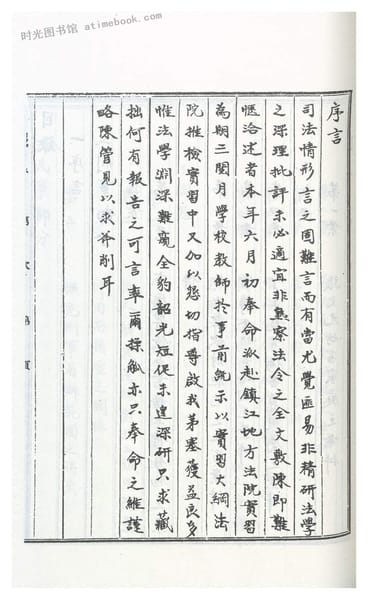 时光图书馆 - atimebook.com
序言
司法情形言之固難言而有當尤覺匪易非精研法學
之深理批評未必適宜非熟察法令之全文敷陳即難
愜洽述者本年六月初奉命派赴鎮江地方法院實習
為期三閱月學校教師於事前既示以實習大綱法
院推檢實習中又加以懇切指導啟我茅塞獲益良多
惟法學淵深難窺全豹韶光短促未遑深研只求藏
拙何有報告之可言率爾操觚亦只奉命之維謹
略陳管見以求斧削耳
第 次 第 頁